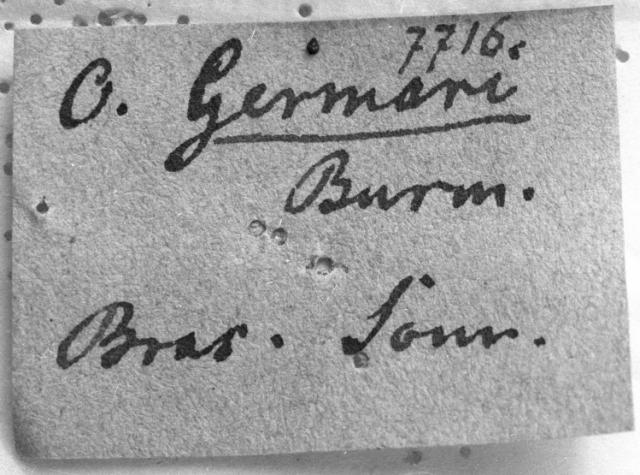 7716.
O. Germari
Burm.
Bras. Somr.